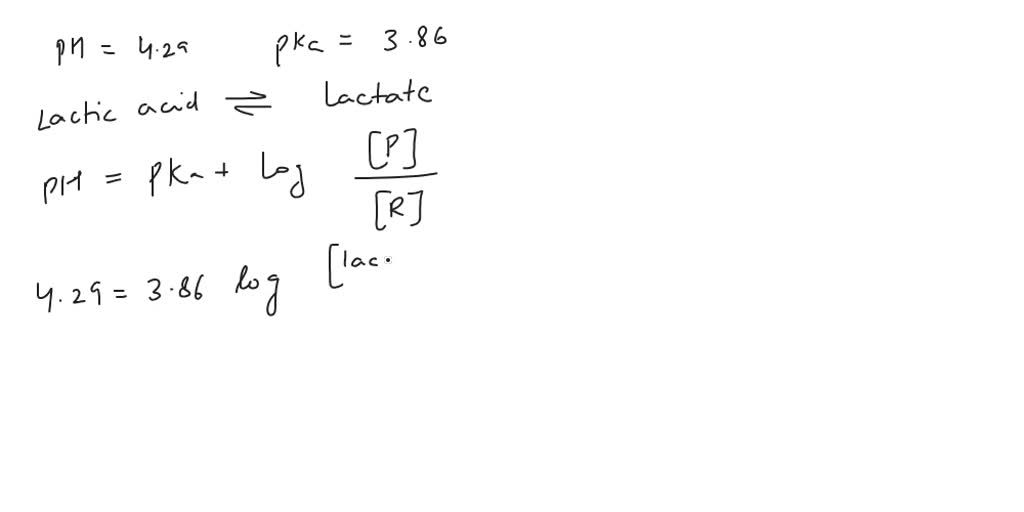 pH = 4.29 pKa = 3.86
Lactic acid ⇌ Lactate
pH = pKa + log [P]/[R]
4.29 = 3.86 log [lac.